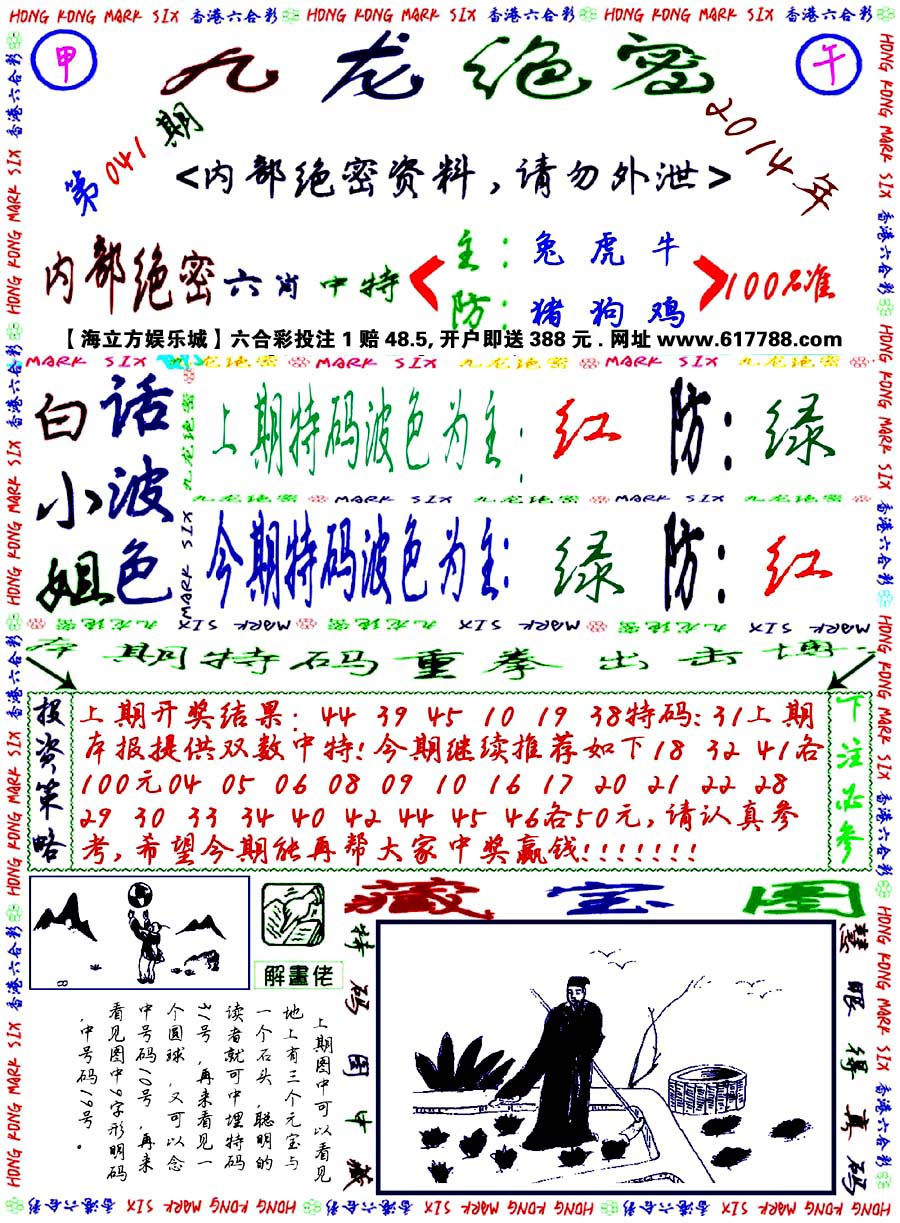 HONG KONG MARK SIX 香港六合彩 HONG KONG MARK SIX 香港六合彩 HONG KONG MARK SIX 香港六合彩
甲
九龙绝密
午
第041期
2014年
<内部绝密资料,请勿外泄>
内部绝密六肖中特
主:兔虎牛
防:猪狗鸡
100%准
【海立方娱乐城】六合彩投注1赔48.5,开户即送388元.网址www.617788.com
MARK SIX 九龙绝密 MARK SIX 九龙绝密 MARK SIX 九龙绝密
白小姐
话波色
上期特码波色为主:红 防:绿
九龙绝密 MARK SIX 九龙绝密 MARK SIX 九龙绝密
今期特码波色为主:绿 防:红
九龙绝密 MARK SIX
MARK SIX 九龙绝密 MARK SIX 九龙绝密 MARK SIX 九龙绝密 MARK SIX
本期特码重拳出击
投资策略
上期开奖结果:44 39 45 10 19 38特码:31上期
本报提供双数中特!今期继续推荐如下18 32 41各
100元04 05 06 08 09 10 16 17 20 21 22 28
29 30 33 34 40 42 44 45 46各50元,请认真参
考,希望今期能再帮大家中奖赢钱!!!!!!!
下注必参
藏宝图
解畫佬
特码图中藏
慧眼得真码
上期图中可以看见
地上有三个元宝与
一个石头,聪明的
读者就可中埋特码
31号,再来看见一
个圆球,又可以念
中号码10号,再来
看见图中9字形明码
,中号码19号。
HONG KONG MARK SIX 香港六合彩 HONG KONG MARK SIX 香港六合彩 HONG KONG MARK SIX 香港六合彩 HONG KONG MARK SIX 香港六合彩
HONG KONG MARK SIX 香港六合彩 HONG KONG MARK SIX 香港六合彩 HONG KONG MARK SIX 香港六合彩 HONG KONG MARK SIX 香港六合彩
HONG KONG MARK SIX 香港六合彩 HONG KONG MARK SIX 香港六合彩 HONG KONG MARK SIX 香港六合彩